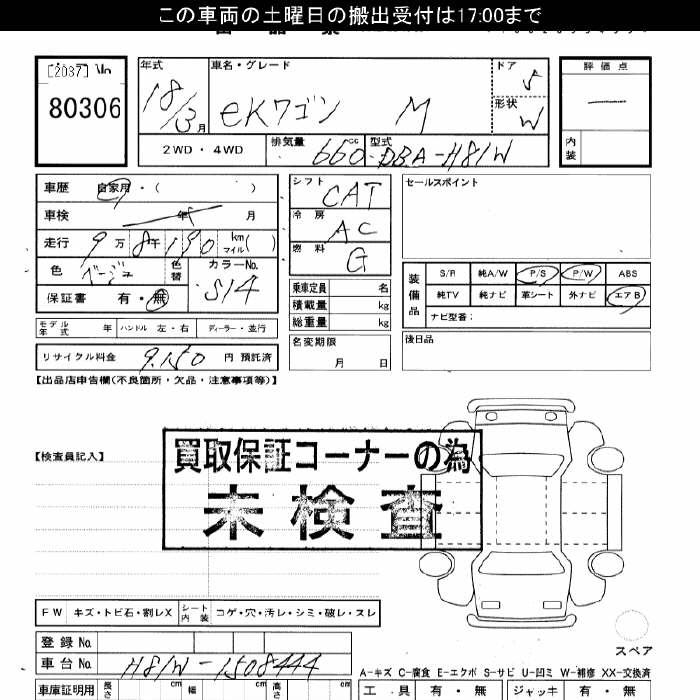 この車両の土曜日の搬出受付は17:00まで
[2037] No
80306
年式 18/3月
車名・グレード eKワゴン M
ドア 5
形状 W
評価点 —
内装
2WD・4WD
排気量 660cc
型式 DBA-H81W
車歴 自家用・( )
車検 年 月
走行 9万8千190km マイル( )
色 ベージュ
色替
カラーNo. S14
保証書 有・無
モデル年式 年 ハンドル 左・右 ディーラー・並行
リサイクル料金 9.150 円 預託済
シフト CAT
冷房 AC
燃料 G
乗車定員 名
積載量 kg
総重量 kg
名変期限 月 日
セールスポイント
装備品
S/R 純A/W P/S P/W ABS
純TV 純ナビ 革シート 外ナビ エアB
ナビ型番:
後日品
【出品店申告欄(不良箇所・欠品・注意事項等)】
【検査員記入】
買取保証コーナーの為
未検査
FW キズ・トビ石・割レX シート内装 コゲ・穴・汚レ・シミ・破レ・スレ
スペア
登録No
車台No H81W-1508444
A-キズ C-腐食 E-エクボ S-サビ U-凹ミ W-補修 XX-交換済
車庫証明用 長さ cm 幅 cm 高さ cm
工具 有・無 ジャッキ 有・無